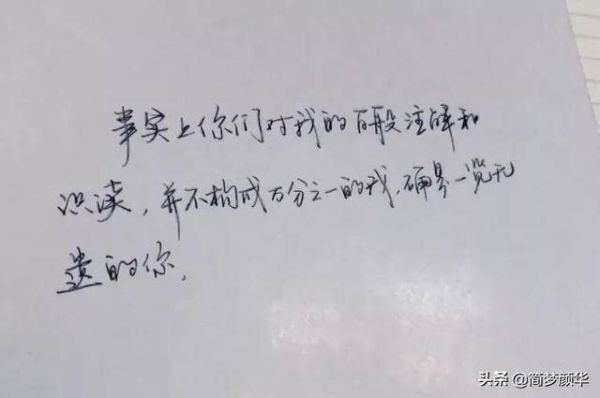 事实上你们对我的百般注解和
识读,并不构成万分之一的我,确是一览无
遗的你,
头条 @简梦颜华